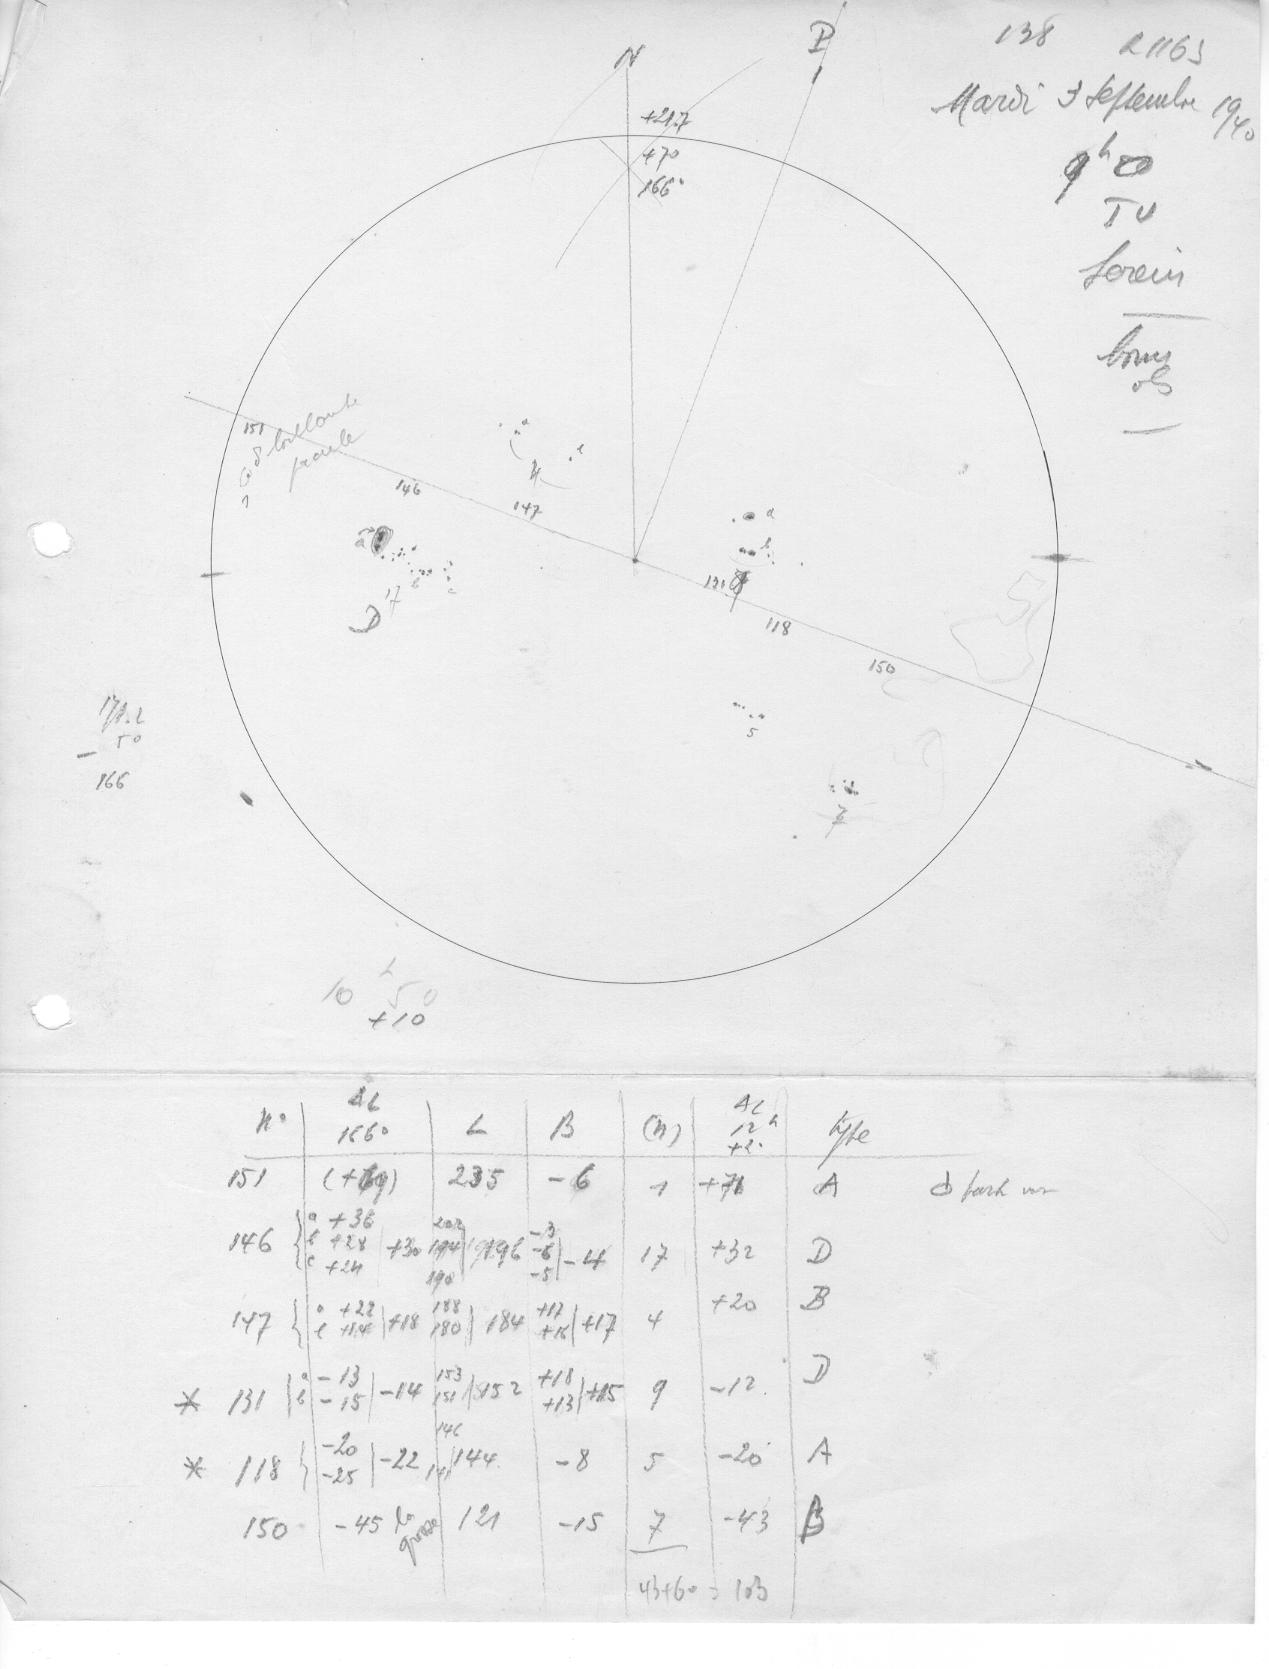 138 R1163
Mardi 3 Septembre 1940
9h 00
TU
Serein
bonnes
obs
N
P
+21.7
+70
166°
151
brillante
facule
146
147
a
a
b
c
D 17
4
a
b
131
118
150
5
7
171.2
- 50
166
10h 50
+10
N° | AL 166° | L | B | (N) | AL 12h +2° | type
151 | (+69) | 235 | -6 | 1 | +71 | A
146 { a +36 b +28 c +24 | +30 | 202 194 190 | 196 | -3 -6 -5 | -4 | 17 | +32 | D
147 { a +22 b +14 | +18 | 188 180 | 184 | +17 +16 | +17 | 4 | +20 | B
* 131 { a -13 b -15 | -14 | 153 151 | 152 | +18 +13 | +15 | 9 | -12 | D
* 118 { -20 -25 | -22 | 146 141 | 144 | -8 | 5 | -20 | A
150 | -45 la grosse | 121 | -15 | 7 | -43 | B
43+60 = 103